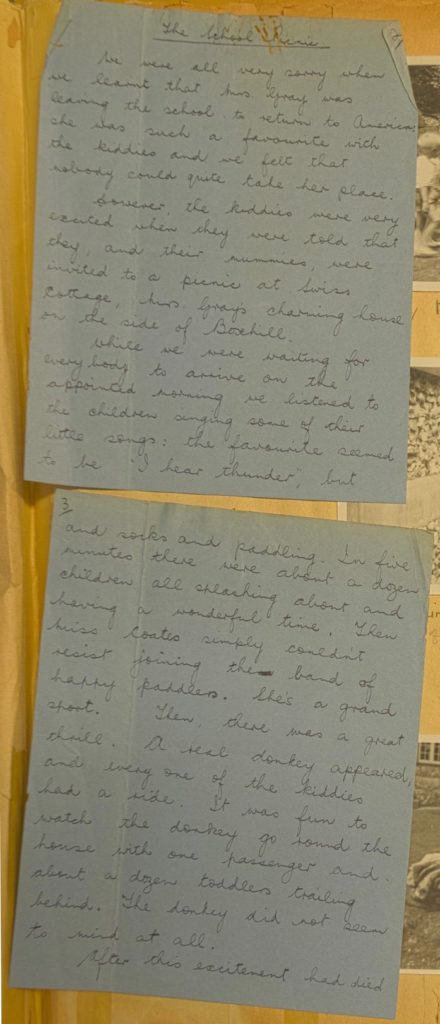 The School Picnic.
We were all very sorry when
we learnt that Mrs. Gray was
leaving the school to return to America;
she was such a favourite with
the kiddies and we felt that
nobody could quite take her place.
However, the kiddies were very
excited when they were told that
they, and their mummies, were
invited to a picnic at Swiss
Cottage, Mrs. Gray's charming house
on the side of Boxhill.
While we were waiting for
everybody to arrive on the
appointed morning we listened to
the children singing some of their
little songs: the favourite seemed
to be "I hear thunder", but
3/
and socks and paddling. In five
minutes there were about a dozen
children all splashing about and
having a wonderful time. Then
Miss Coates simply couldn't
resist joining the band of
happy paddlers. She's a grand
sport. Then, there was a great
thrill. A real donkey appeared,
and every one of the kiddies
had a ride. It was fun to
watch the donkey go round the
house with one passenger and
about a dozen toddlers trailing
behind. The donkey did not seem
to mind at all.
After this excitement had died